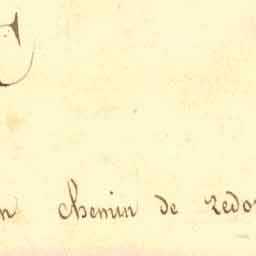 C
n chemin de redo